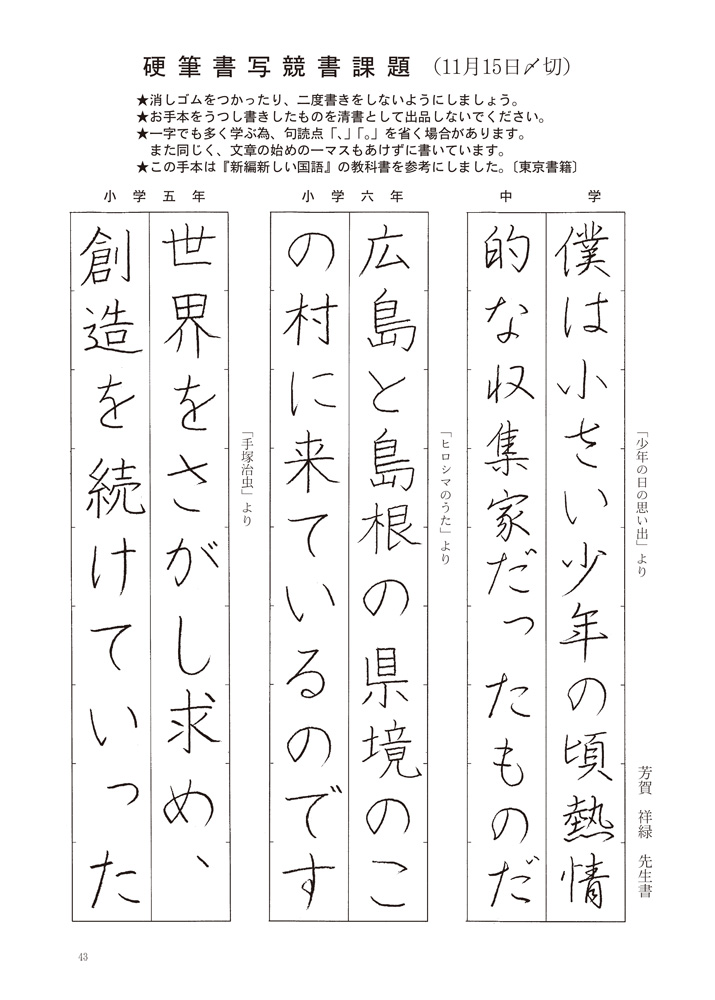 硬筆書写競書課題 （11月15日〆切）
★消しゴムをつかったり、二度書きをしないようにしましょう。
★お手本をうつし書きしたものを清書として出品しないでください。
★一字でも多く学ぶ為、句読点「、」「。」を省く場合があります。
また同じく、文章の始めの一マスもあけずに書いています。
★この手本は『新編新しい国語』の教科書を参考にしました。〔東京書籍〕
中学
芳賀 祥緑 先生書
「少年の日の思い出」より
僕は小さい少年の頃熱情
的な収集家だったものだ
小学六年
「ヒロシマのうた」より
広島と島根の県境のこ
の村に来ているのです
小学五年
「手塚治虫」より
世界をさがし求め、
創造を続けていった
43